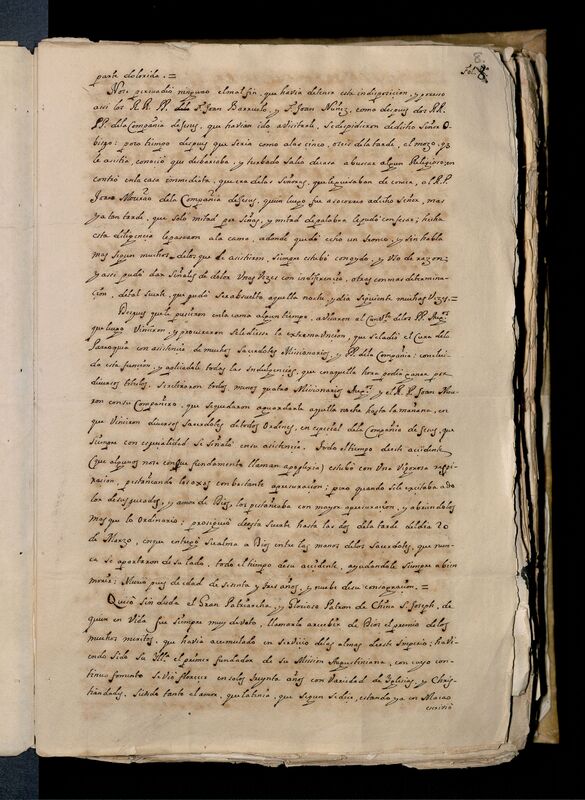 8.
Fol. 8.
parte dolorida. =
No se persuadio ninguno el mal fin, que havia de tener esta indisposicion, y preciso
assi los RR. PP. Fr. Joan Barruelo, y Fr. Joan Nuñez, como despues dos RR.
PP. de la Compañia de Jesus, que havian ido a visitarle, se despidieron de dicho Señor O-
bispo: poco tiempo despues que seria como a las cinco, o seis de la tarde, el mozo, q̃
le asistia, conoció que desbariaba, y turbado salio de casa a buscar algun Religioso; en
contró en la casa immediata, que era de las Señoras, al R. P.
Jorze de la Compañia de Jesus, quien luego fue a socorrer a dicho Señor, mas
ya tan tarde, que solo mitad por señas, y mitad de palabra le pudo confesar; hecha
esta diligencia le pasaron a la cama, adonde quedó echo un tronco, y sin habla
mas segun muchos, de los que le asistieron, siempre estubó con oydo, y Vso de razon;
y assi pudo dar señales de dolor Vnas Vezes con indiferencia, otras con mas determina-
cion, de tal suerte, que pudo ser absuelto aquella noche, y dia siguiente muchas Vezes. =
Despues que le pusieron en la cama algun tiempo, avisaron al Convto. de los PP.
que luego Vinieron, y procuraron se le diesse la extremauncion, que se la dió el Cura de la
Parroquia con asistencia de muchos Sacerdotes Missionarios, y PP. de la Compañia: conclui-
da esta funcion, y aplicadole todas las Indulgencias, que en aquella hora podia ganar por
diversos titulos. Se retiraron todos, menos quatro Missionarios y el R. P. Joan
con su Compañero, que se quedaron aguardarle aquella noche hasta la mañana, en
que Vinieron diversos Sacerdotes de todas Ordenes, en especial de la Compañia de Jesus, que
siempre con especialidad se señaló en su asistencia. Todo el tiempo de este accidente
(que algunos no se con que fundamento llaman apoplexia) estubó con Vna Vigorosa respi-
racion, pestañeando los oxos con bastante apresuracion; pero quando se le excitaba a do
lor de sus pecados, y amor de Dios, los pestañeaba con mayor apresuracion, y abriendolos
mas que lo Ordinario; prosiguió de esta suerte hasta las dos de la tarde del dia 20
de Marzo, en que entregó su alma a Dios entre las manos de los Sacerdotes, que nun-
ca se apartaron de su lado, todo el tiempo de su accidente, ayudandole siempre a bien
morir: Murió pues de edad de setenta y tres años, y nuebe de su consagracion. =
Quisó sin duda el Gran Patriarcha, y Glorioso Patron de China Sn. Joseph, de
quien en Vida fue siempre muy devoto, llamarle a recebir de Dios el premio de los
muchos meritos, que havia acumulado en servicio de las almas de este Imperio: havi-
endo sido su Illma. el primer fundador de su Mission Augustiniana, con cuyo con-
tinuo fomento se vió florecer en solos treynta años con Variedad de Yglesias, y Chris-
tiandades, siendo tanto el amor, que la tenia, que segun se dice, estando ya en Macao
escrivió